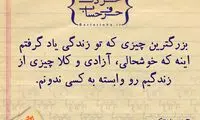 بزرگترین چیزی که تو زندگی یاد گرفتم
اینه که خوشحالی، آزادی و کلا چیزی از
زندگیم رو وابسته به کسی ندونم.